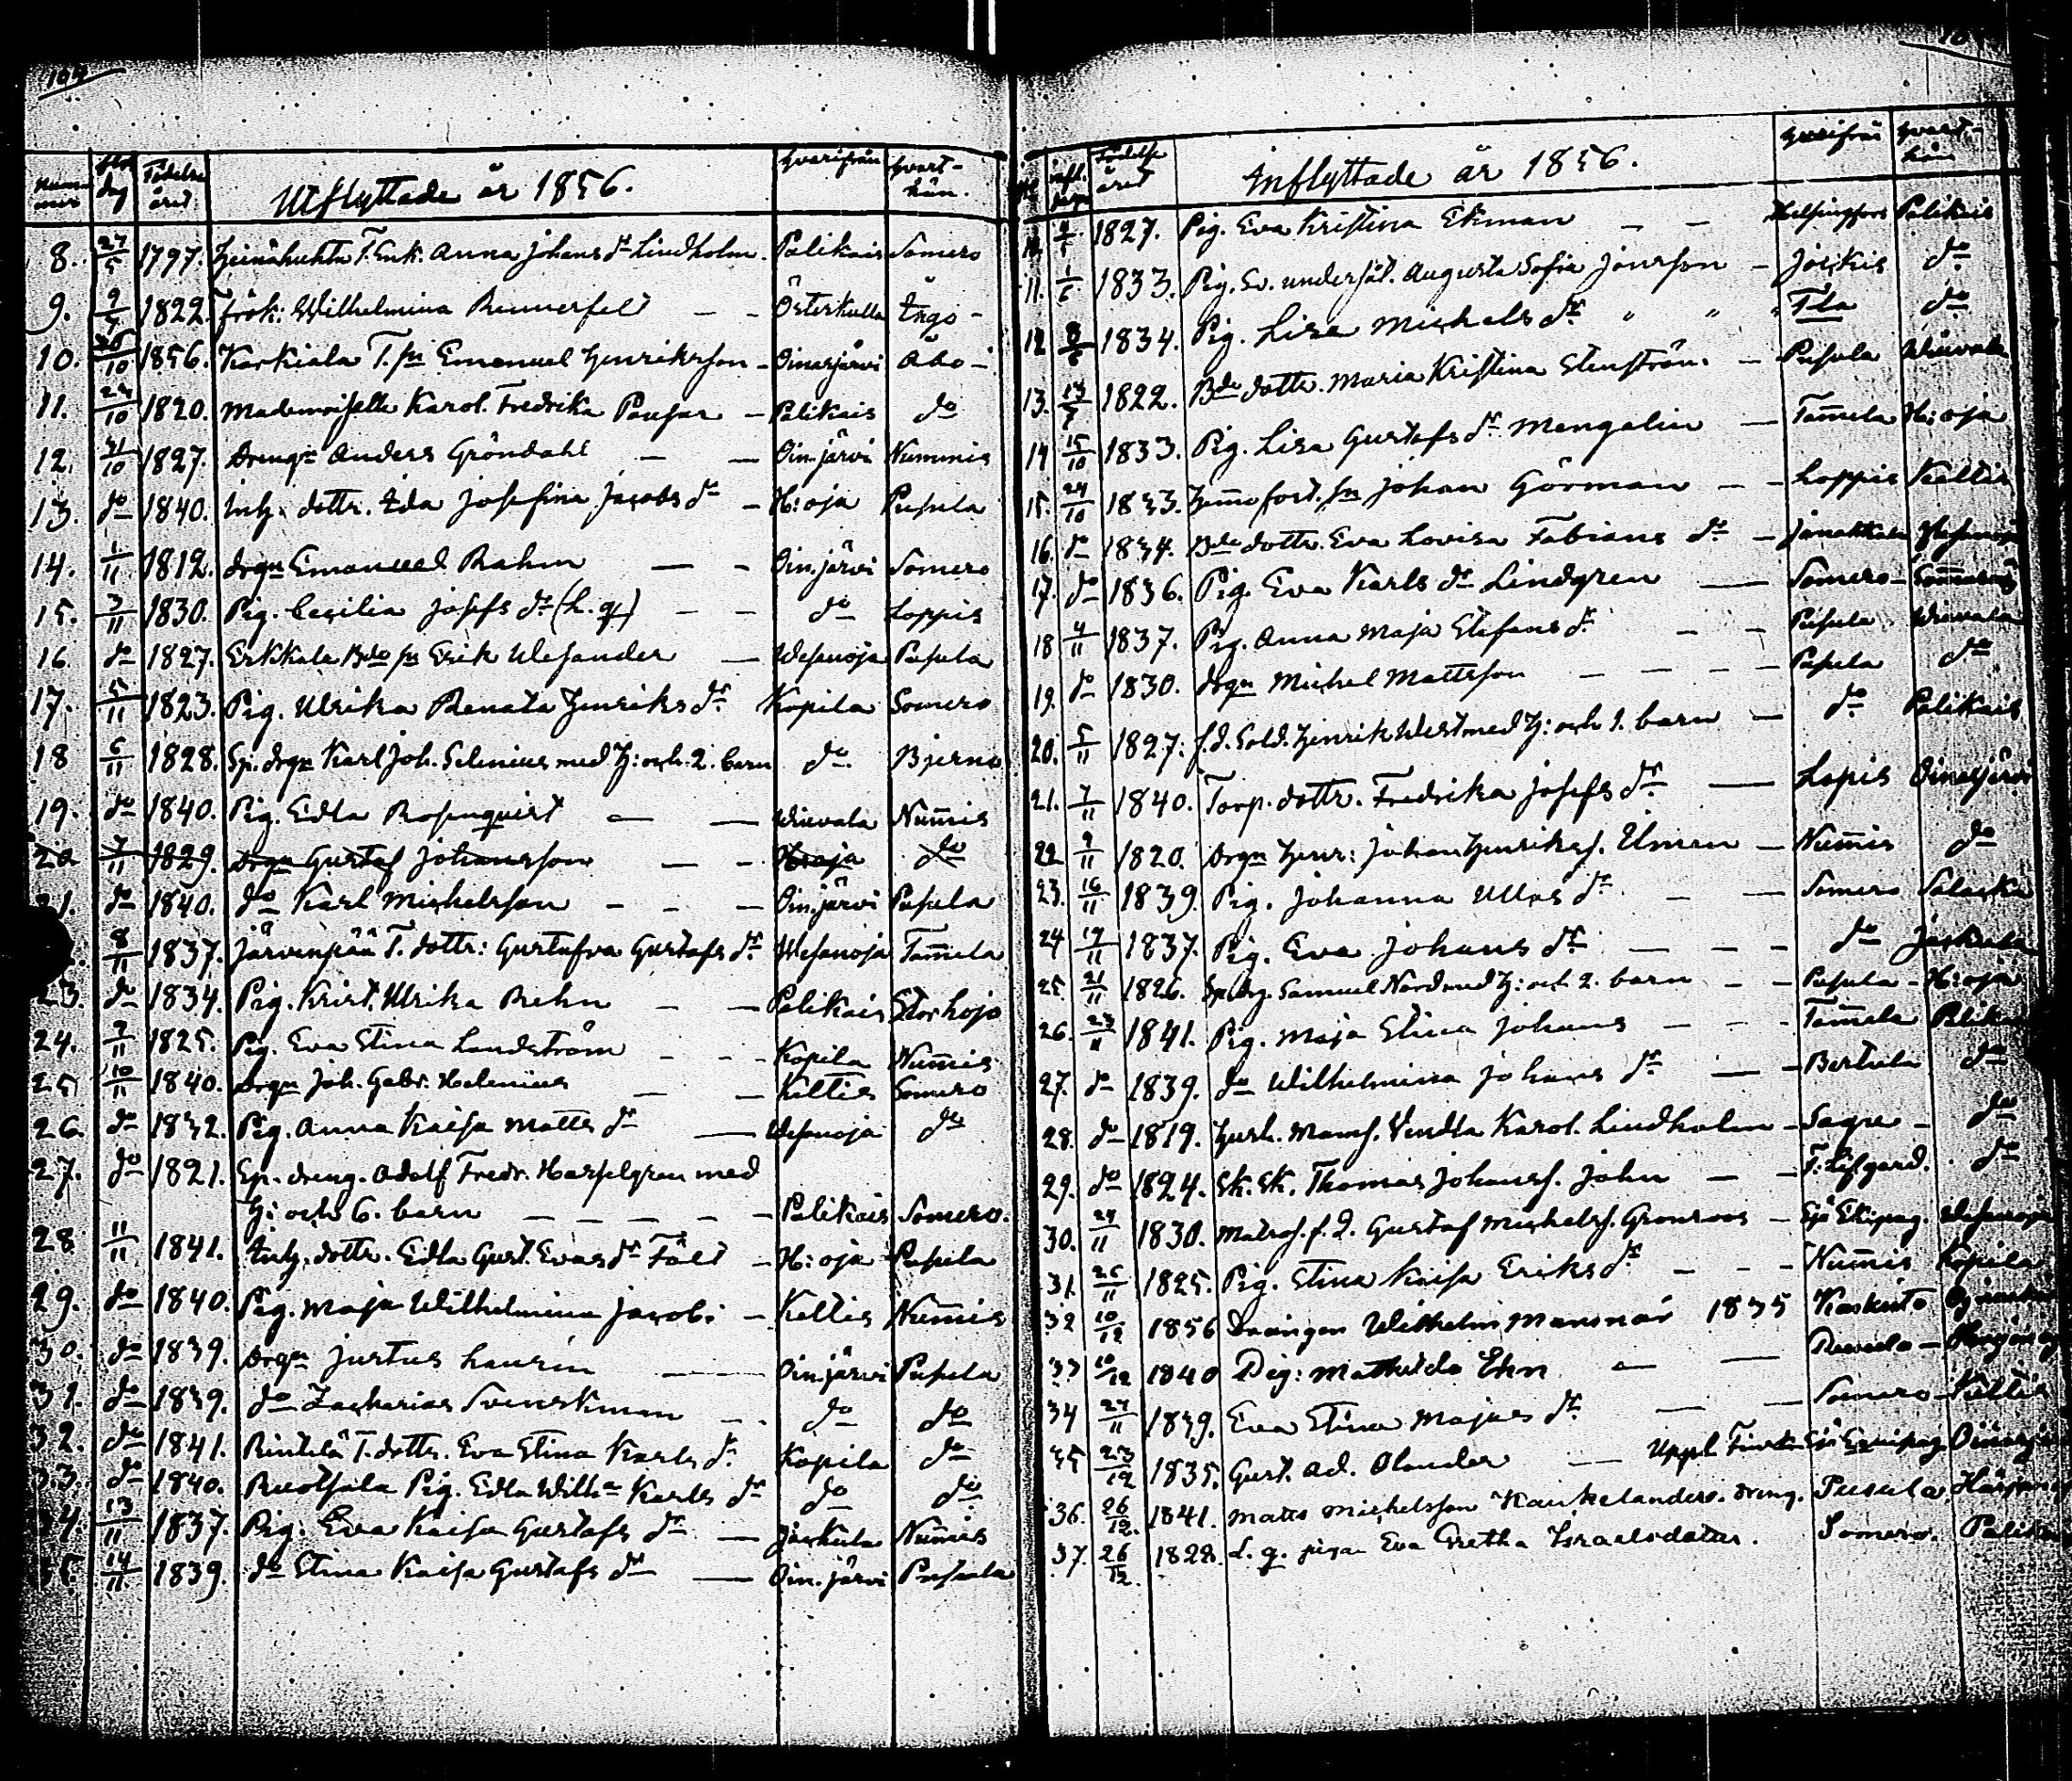 Nummer dag Födelse året Utflyttade år 1856. hvarifrån hvart-hän.
8. 27/5 1797. Heinähuhta T. Enk. Anna Johans dr Lindholm. Palikais Somero
9. 9/7 1822. Frök: Wilhelmina Rennerfelt — — Österkulla Ingo -
10. 10 1856. Karkiala T. sn Emanuel Henriksson - Oinasjärvi Åbo -
11. 29/10 1820. Mademoiselle Karol. Fredrika — Palikais do
12. 31/10 1827. Drengn Anders Gröndahl — — Oin.järvi Nummis
13. do 1840. Inh. dottr. Ida Josefina Jacobs dr — H:oja Pusula
14. 1/11 1812. drgn Emanuel Rahm — - Oin.järvi Somero
15. 3/11 1830. Pig. Cecilia Josefs dr (L. q.) — — do Loppis
16 do 1827. Erkkala Bdo sn Erik Wesander — Wesanoja Pusula
17. 5/11 1823. Pig. Ulrika Renata Henriks dr. Kopila Somero
18 6/11 1828. Sp. drgn Karl Joh. Selenius med H: och. 2. barn do Bjerno
19. do 1840. Pig. Edla Rosenqvist — — Wiuvala Num̄is
20. 7/11 1829. Drgn Gustaf Johansson — - H:oja do
21. do 1840. do Karl Michelsson - - — Oin.järvi Pusula
8/11 1837. Järvenpää T. dottr: Gustafva Gustafs dr. Wesanoja Tam̄ela
23. do 1834. Pig. Krist. Ulrika Rehn — — Palikais Storlojo
24. 7/11 1825. Pig. Eva Stina Landström - - - Kopila Num̄is
25 10/11 1840. Drgn Joh. Gabr. Helenius — — Keltis Somero
26. do 1832. Pig. Anna Kaisa Matts dr — Wesanoja do
27. do 1821. Sp. dreng. Adolf Fredr. Hasselgren med
H: och 6. barn — — — — — Palikais Somero.
28. 11/11 1841. Inh. dottr. Edla Gust. Evas dr Fält - H: oja Pusula
29. do 1840. Pig. Maja Wilhelmina Jacobs. — Keltis Num̄is
30. do 1839. Drgn Justus Laurin — Oin.järvi Pusula
31. do 1839. do Zacharias Svenskman - - do do
32. do 1841. Rintelä T. dottr. Eva Stina Karls dr. Kopila do
33. do 1840. Ruotsala Pig. Edla Willa Karls dr do do
34. 13/11 1837. Pig. Eva Kaisa Gustafs dr — Jäskula Num̄is
35. 14/11 1839. do Stina Kaisa Gustafs dr — Oin. järvi Pusula
Födelse året Inflyttade år 1856. hvarifrån hvart-hän
1827. Pig. Eva Kristina Ekman — — Helsingfors Palikais
11. 1/6 1833. Pig. Sv. undersåt. Augusta Sofia Jonsson - Jockis do
12 8/6 1834. Pig. Lisa Michels dr. " " " do
13. 13/7 1822. Bde dottr. Maria Kristina Stenström. — Pusula Wiuvala
14 15/10 1833. Pig. Lisa Gustafs dr Mengalin — Tam̄ela H:oja
15. 24/10 1833. sn Johan Görman — - Loppis Keltis
16. do 1834. Bde dottr. Eva Lovisa Fabians dr - Janakkala
17. do 1836. Pig. Eva Karls dr Lindgren — Somero -
18 4/11 1837. Pig. Anna Maja Stefans dr. — - Pusula Wiuvala
19. do 1830. drgn Michel Mattsson — — — — Pusula do
20. 5/11 1827. f. d. Sold. Henrik West med H: och 1. barn — do Palikais
21. 7/11 1840. Torp. dottr. Fredrika Josefs dr. — Lopis Oinasjärvi
22 9/11 1820. Drgn Henr: Johan Henrikss. Elmen — Num̄is do
23. 16/11 1839. Pig. Johanna Ullas dr — — Somero Salaska
24 17/11 1837. Pig. Eva Johans dr. — — — do Jäskula
25 21/11 1826. Sp.drg. Samuel Nord med H: och 2. barn — — Pusula - H:oja
26. 23/11 1841. Pig. Maja Stina Johans — — - Tam̄ela
27. do 1839. do Wilhelmina Johans dr — — Bertula do
28. do 1819. Hush. Mams. Vendla Karol. Lindholm - Sagu - do
29. do 1824. Sk. Sk. Thomas Johanss. John — — do
30. 24/11 1830. Matros. f. d. Gustaf Michelss. Gronroos — Sjö Ekipag. Wesanoja
31. 25/11 1825. Pig. Stina Kaisa Eriks dr — — - Num̄is Kopila
32 10/12 1856 Drängen Wilhelm 1835
33 10/12 1840 Pig: Mathilda Ehn — —
34 27/11 1839. Eva Stina Majas dr. — — Somero - Keltis
35 23/12 1835. Gust. Ad. Olander —
36. 26/12. 1841. Matts Michelsson Kaukelanders. dreng. Pusula.
37. 26/12. 1828. L. q. pigan Eva Gretha Israelsdotter. Somero.